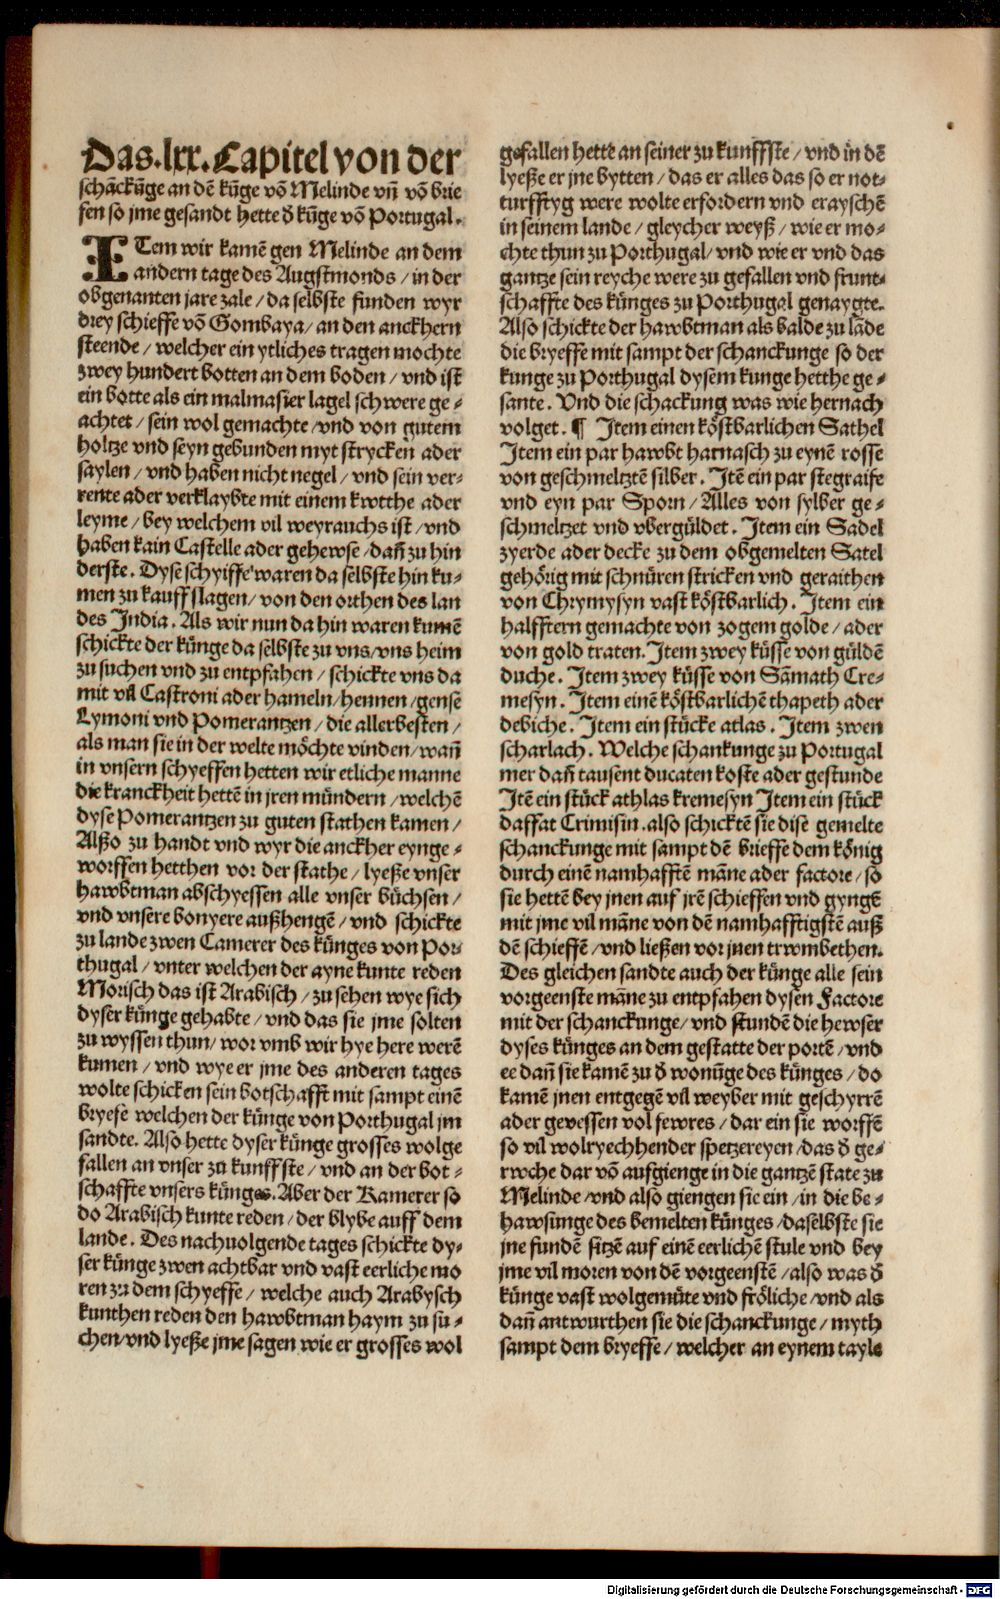 Das.lxx.Capitel von der
schãckũge an dē kũge võ Melinde vñ võ brie
fen so jme gesandt hette d̄ kũge võ Portugal.
ITem wir kamē gen Melinde an dem
andern tage des Augstmonds / in der
obgenanten jare zale / da selbste funden wyr
drey schieffe võ Gombaya / an den anckhern
steende / welcher ein ytliches tragen mochte
zwey hundert botten an dem boden / vnd ist
ein botte als ein malmasier lagel schwere ge⸗
achtet / sein wol gemachte / vnd von gutem
holtze vnd seyn gebunden myt strycken ader
saylen / vnd haben nicht negel / vnd sein ver⸗
rente ader verklaybte mit einem kwtthe ader
leyme / bey welchem vil weyrauchs ist / vnd
haben kain Castelle ader gehewse / dañ zu hin
derste. Dyse schyiffe waren da selbste hin ku⸗
men zu kauffslagen / von den orthen des lan
des India. Als wir nun da hin waren kumē
schickte der künge da selbste zu vns / vns heim
zu suchen vnd zu entpfahen / schickte vns da
mit vil Castroni ader hameln / hennen / gense
Lymoni vnd Pomerantzen / die allerbesten /
als man sie in der welte möchte vinden / wañ
in vnsern schyeffen hetten wir etliche manne
die kranckheit hettē in jren mündern / welchē
dyse Pomerantzen zu guten stathen kamen /
Alßo zu handt vnd wyr die anckher eynge⸗
worffen hetthen vor der stathe / lyeße vnser
hawbtman abschyessen alle vnser büchsen /
vnd vnsere bonyere außhengē / vnd schickte
zu lande zwen Camerer des künges von Por⸗
thugal / vnter welchen der ayne kunte reden
Morisch das ist Arabisch / zu sehen wye sich
dyser künge gehabte / vnd das sie jme solten
zu wyssen thun / wor vmb wir hye here werē
kumen / vnd wye er jme des anderen tages
wolte schicken sein botschafft mit sampt einē
bryefe welchen der künge von Porthugal jm
sandte. Also hette dyser künge grosses wolge
fallen an vnser zu kunffste / vnd an der bot⸗
schaffte vnsers künges. Aber der Kamerer so
do Arabisch kunte reden / der blybe auff dem
lande. Des nachuolgende tages schickte dy⸗
ser künge zwen achtbar vnd vast eerliche mo
ren zu dem schyeffe / welche auch Arabysch
kunthen reden den hawbtman haym zu su⸗
chen / vnd lyeße jme sagen wie er grosses wol
gefallen hette an seiner zu kunffste / vnd in dē
lyeße er jne bytten / das er alles das so er not⸗
turfftyg were wolte erfordern vnd erayschē
in seinem lande / gleycher weyß / wie er mo⸗
chte thun zu Porthugal / vnd wie er vnd das
gantze sein reyche were zu gefallen vnd frunt⸗
schaffte des künges zu Porthugal genaygte.
Also schickte der hawbtman als balde zu lãde
die bryeffe mit sampt der schanckunge so der
kunge zu Porthugal dysem kunge hetthe ge⸗
sante. Vnd die schackung was wie hernach
volget. ¶ Item einen köstbarlichen Sathel
Item ein par hawbt harnasch zu eynē rosse
von geschmeltztē silber. Itē ein par stegraife
vnd eyn par Sporn / Alles von sylber ge⸗
schmeltzet vnd vbergüldet. Item ein Sadel
zyerde ader decke zu dem obgemelten Satel
gehörig mit schnüren stricken vnd geraithen
von Chrymysyn vast köstbarlich. Item ein
halfftern gemachte von zogem golde / ader
von gold traten. Item zwey küsse von güldē
duche. Item zwey küsse von Sãmath Cre⸗
mesyn. Item einē köstbarlichē thapeth ader
debiche. Item ein stücke atlas. Item zwen
scharlach. Welche schankunge zu Portugal
mer dañ tausent ducaten koste ader gestunde
Itē ein stück athlas kremesyn Item ein stück
daffat Crimisin. also schicktē sie dise gemelte
schanckunge mit sampt dē brieffe dem könig
durch einē namhafftē mãne ader factore / so
sie hettē bey jnen auf jrē schieffen vnd gyngē
mit jme vil mãne von dē namhafftigstē auß
dē schieffē / vnd ließen vor jnen trwmbethen.
Des gleichen sandte auch der künge alle sein
vorgeenste mãne zu entpfahen dysen Factore
mit der schanckunge / vnd stundē die hewser
dyses künges an dem gestatte der portē / vnd
ee dañ sie kamē zu d̄ wonũge des künges / do
kamē jnen entgegē vil weyber mit geschyrrē
ader gevessen vol fewres / dar ein sie worffē
so vil wolryechhender spetzereyen / das d̄ ge⸗
rwche dar võ aufgienge in die gantzē state zu
Melinde / vnd also giengen sie ein / in die be⸗
hawsunge des bemelten künges / daselbste sie
jne fundē sitzē auf einē eerlichē stule vnd bey
jme vil moren von dē vorgeenstē / also was d̄
künge vast wolgemüte vnd fröliche / vnd als
dañ antwurthen sie die schanckunge / myth
sampt dem bryeffe / welcher an eynem tayle
Digitalisierung gefördert durch die Deutsche Forschungsgemeinschaft - DFG